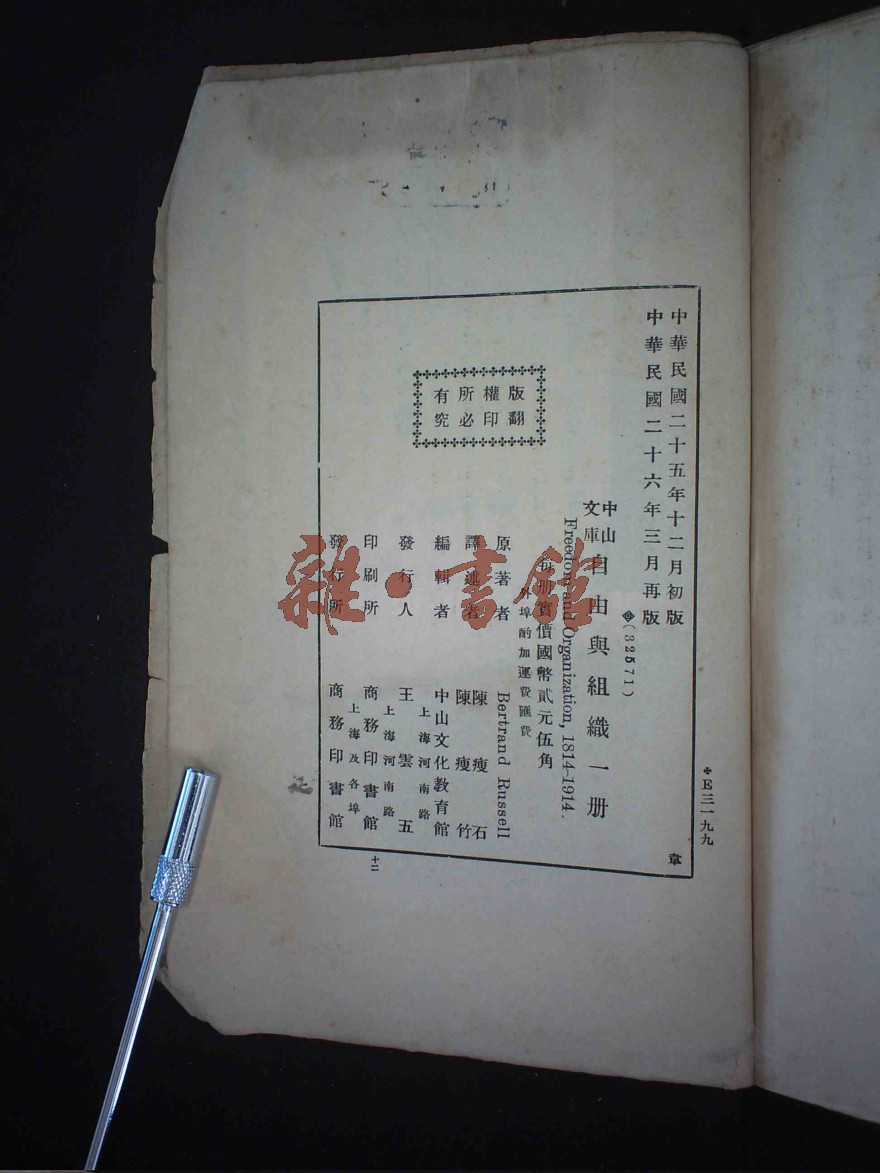 中華民國二十五年十二月初版
中華民國二十六年三月再版
(32571)
中山文庫 自由與組織一册
Freedom and Organization, 1814–1914.
每册實價國幣貳元伍角
外埠酌加運費匯費
原著者 Bertrand Russell
譯述者 陳瘦石 陳瘦竹
編輯者 中山文化教育館
發行人 王雲五
上海河南路
印刷所 商務印書館
上海河南路
發行所 商務印書館
上海及各埠
版權所有
翻印必究
E三一九九
章
十二
雜·書館